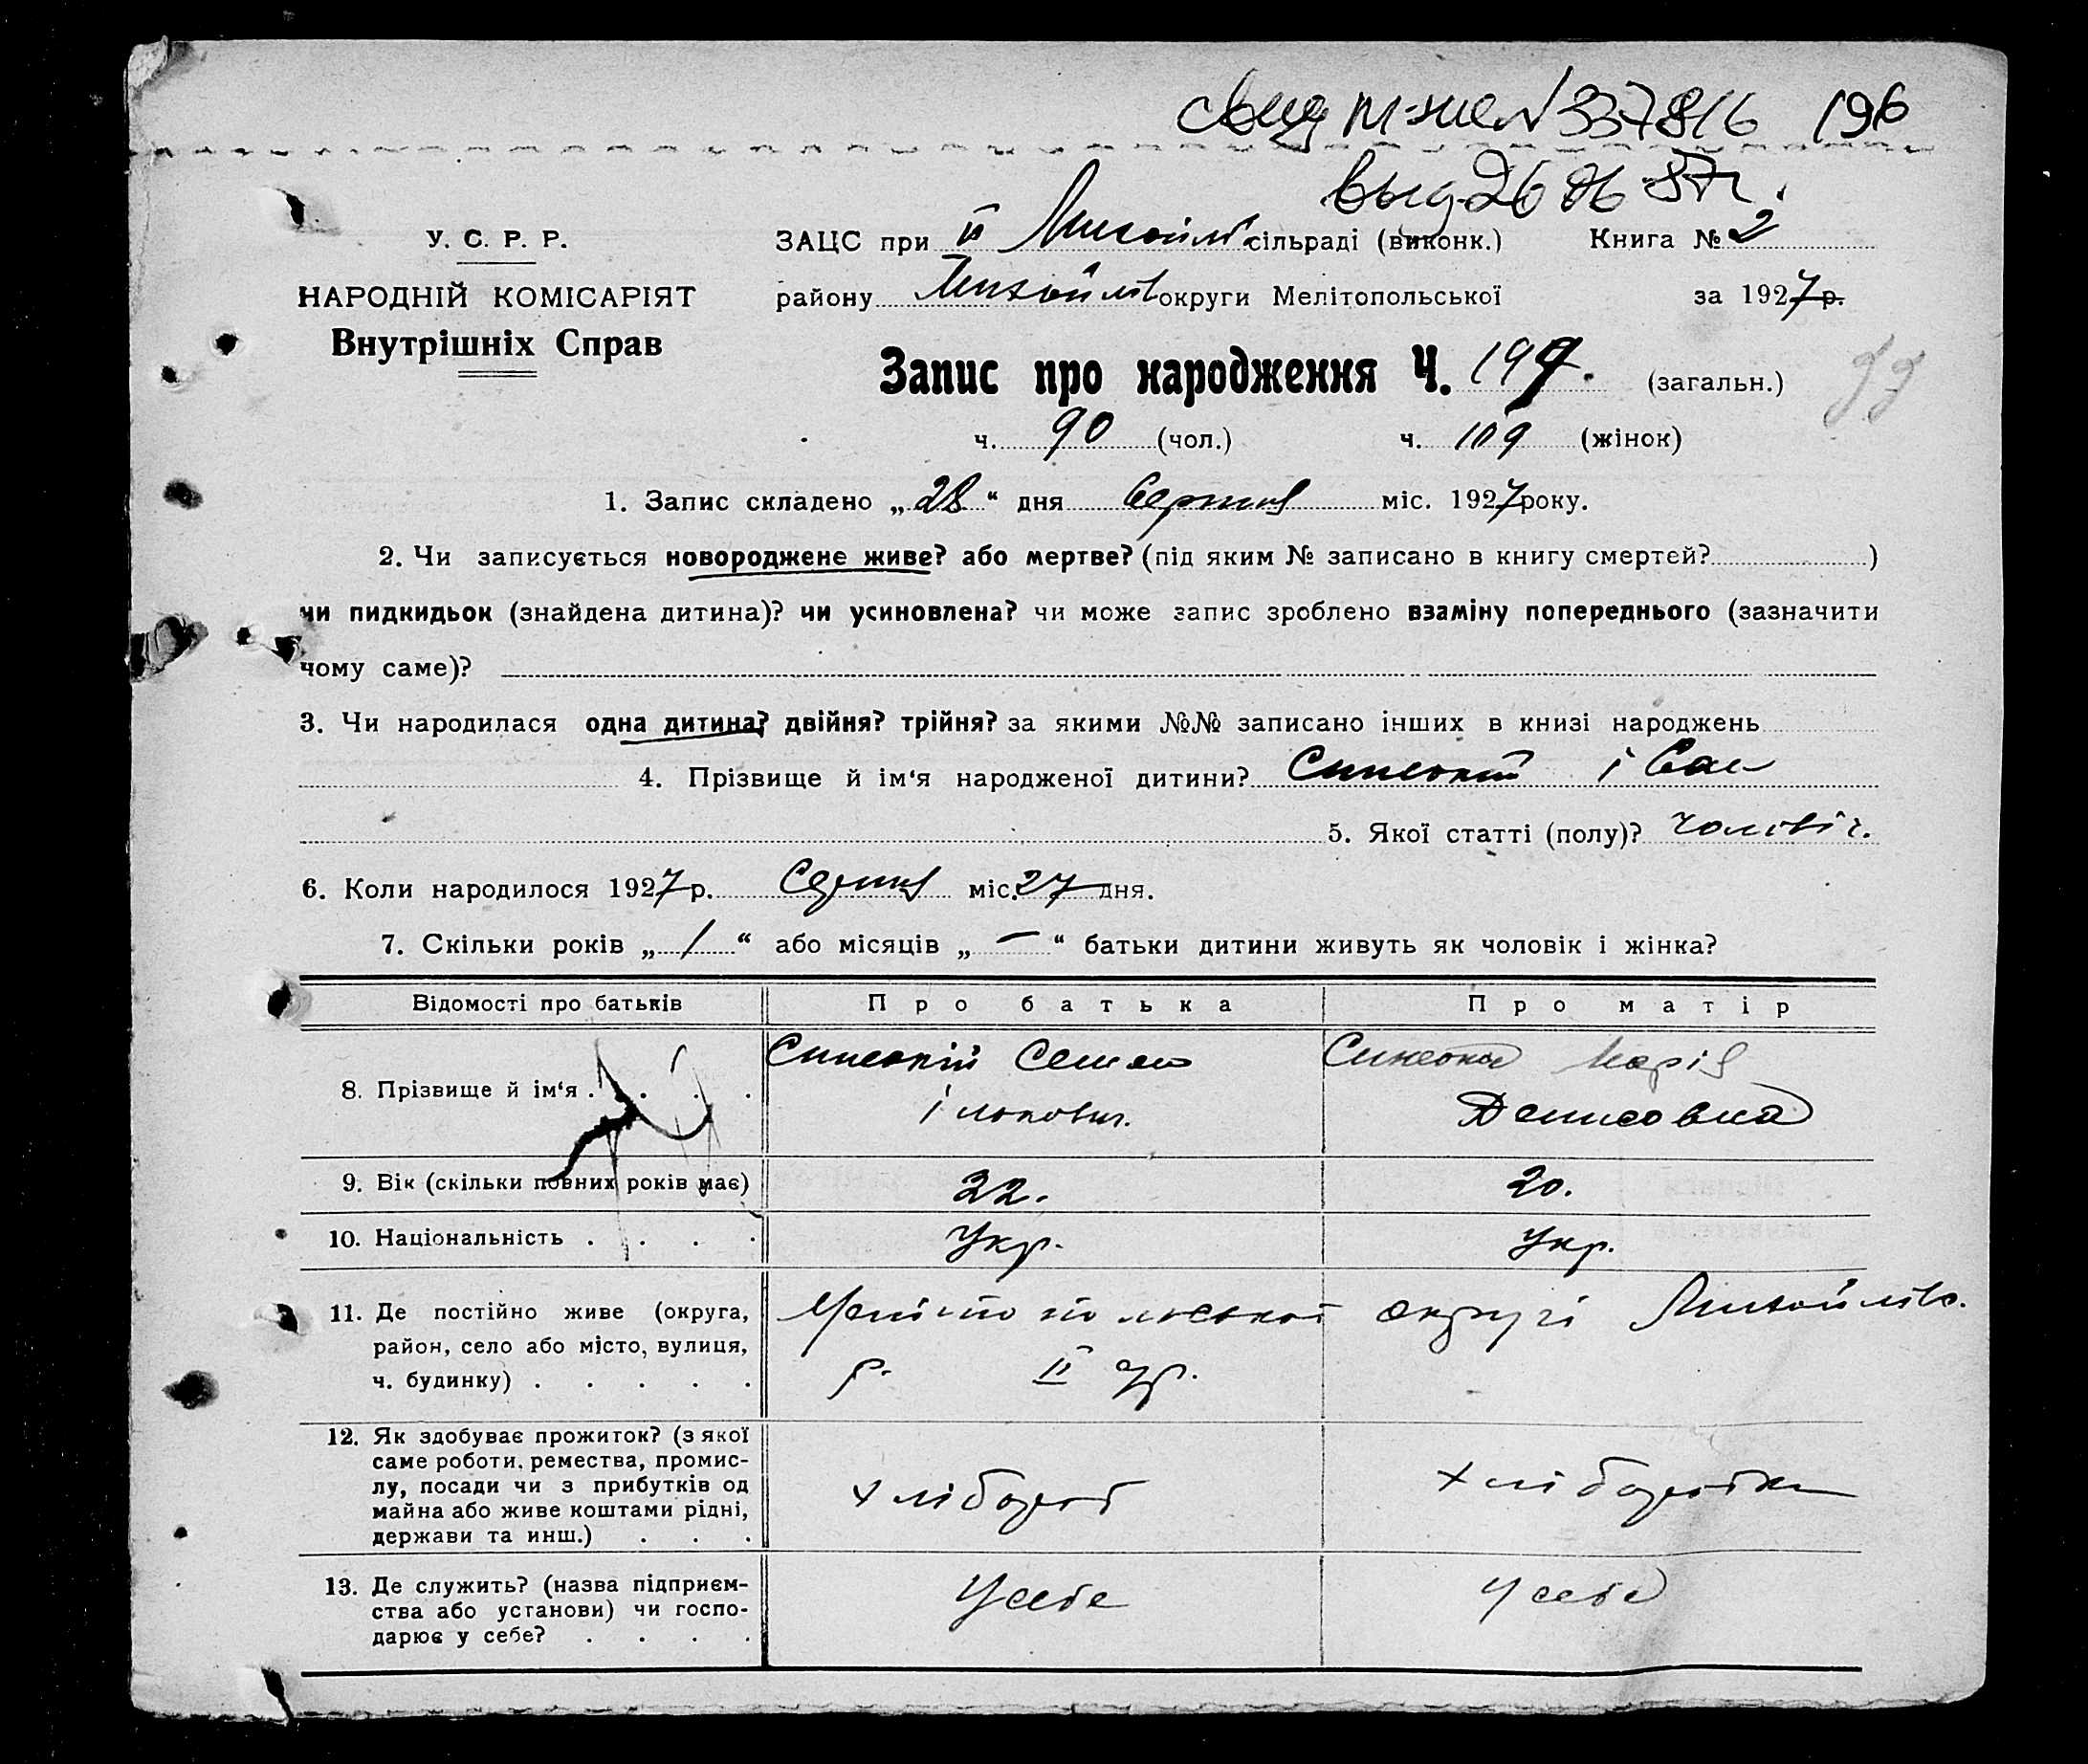 196
У. С. Р. Р.
НАРОДНІЙ КОМІСАРІЯТ
Внутрішніх Справ
ЗАЦС при II Михайлів сільраді (виконк.) Книга № 2
району Михайлів округи Мелітопольської за 1927 р.
Запис про народження Ч. 199. (загальн.) 99
ч. 90 (чол.) ч. 109 (жінок)
1. Запис складено „28“ дня Серпня міс. 1927 року.
2. Чи записується новороджене живе? або мертве? (під яким № записано в книгу смертей? )
чи пидкидьок (знайдена дитина)? чи усиновлена? чи може запис зроблено взаміну попереднього (зазначити
чому саме)?
3. Чи народилася одна дитина? двійня? трійня? за якими №№ записано інших в книзі народжень
4. Прізвище й ім‘я народженої дитини? Синеокий Іван
5. Якої статті (полу)? чоловіч.
6. Коли народилося 1927 р. Серпня міс. 27 дня.
7. Скільки років „1“ або місяців „—“ батьки дитини живуть як чоловік і жінка?
Відомості про батьків Про батька Про матір
8. Прізвище й ім‘я . . . . Синеокій Семен Синеока Марія
Денисовна
9. Вік (скільки повних років має) 22. 20.
10. Національність . . . . Укр. Укр.
11. Де постійно живе (округа, Мелітопольської округі Михайлів.
район, село або місто, вулиця,
ч. будинку) . . . . . р. II
12. Як здобуває прожиток? (з якої
саме роботи, ремества, промис-
лу, посади чи з прибутків од хлібороб хліборобка
майна або живе коштами рідні,
держави та инш.) . . .
13. Де служить? (назва підприєм- У себе У себе
ства або установи) чи госпо-
дарює у себе? . . . .